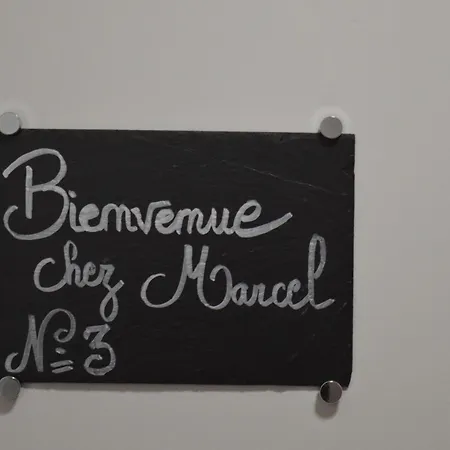 Bienvenue
chez Marcel
N= 3